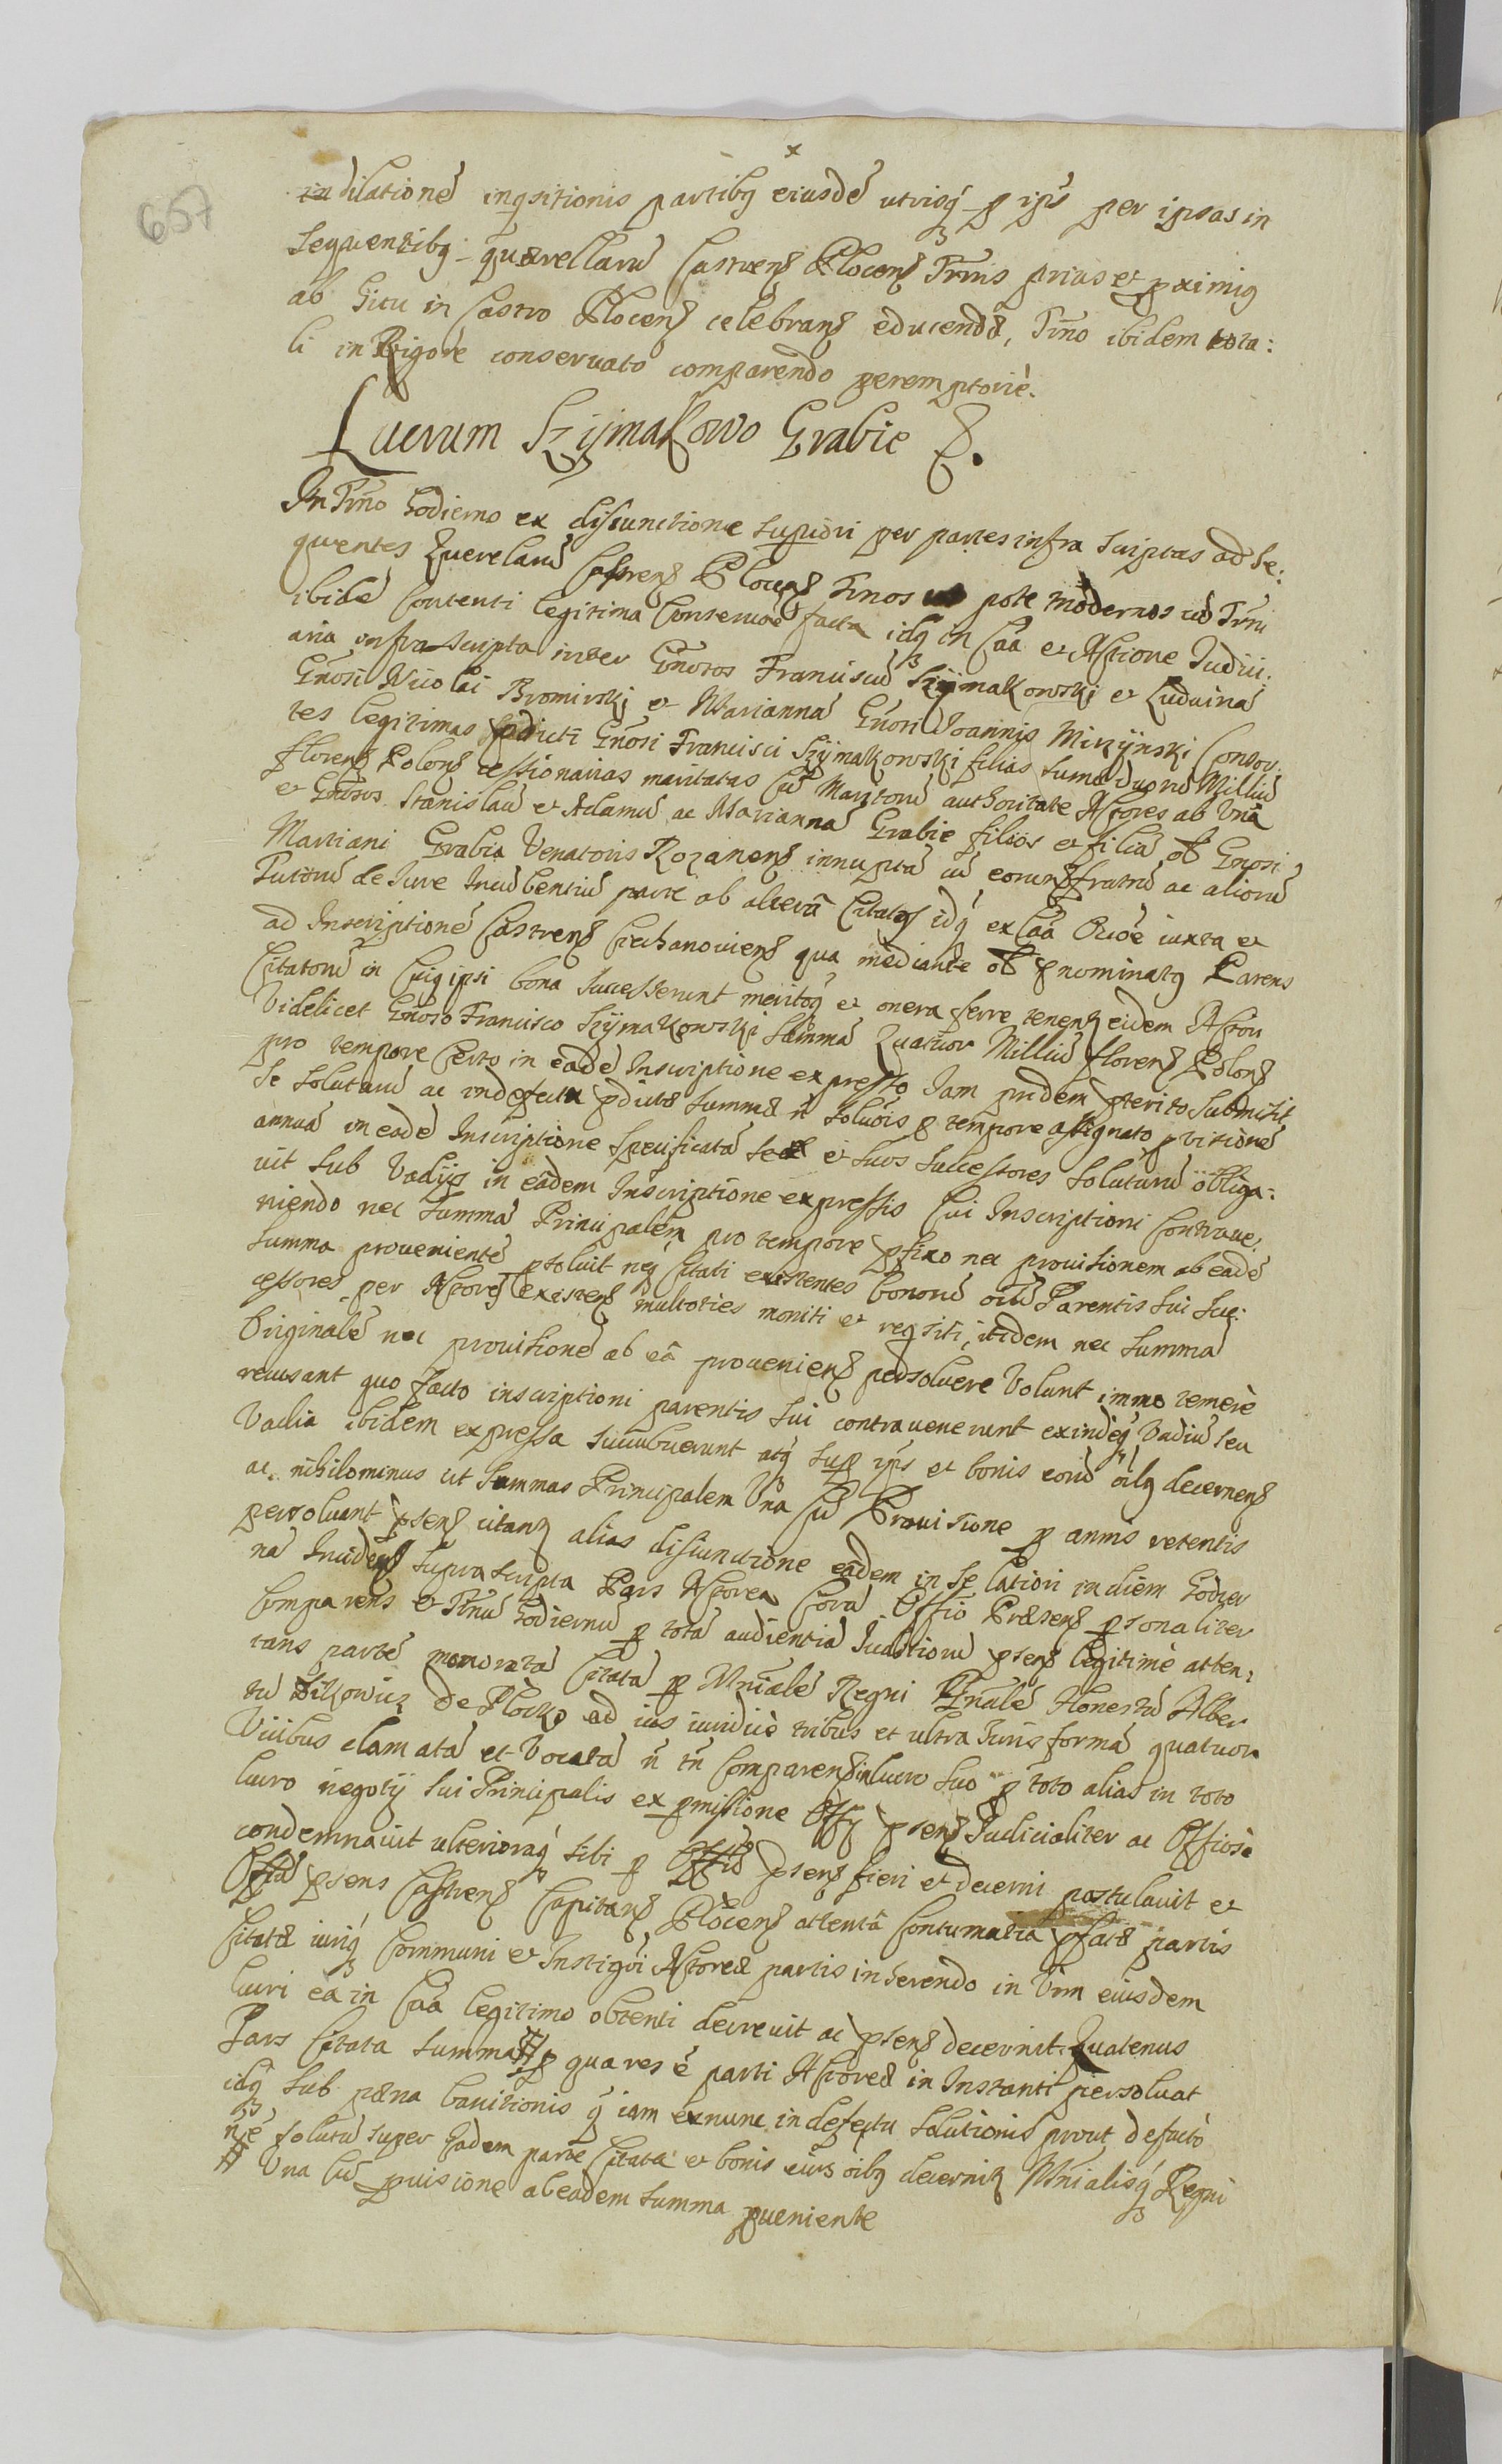 657
in dilatione inqsitionis partibq eiusdē utrisq p ips per ipsas in
sequentibq querellarū Castrenς Plocenς Trmis prius et pximiq
ab hicu in Castro Plocenς celebranς educendӕ, Trmo ibidem tota:
li in Rigore conservato comparendo peremptoriè.
Lucrum Szÿmakowo Grabie
In Trmo hodierno ex disiunctione supiori per partes infra scriptas ad Se:
quentes Querelarū Castrenς Plocenς Trnos ut pote modernos cū Trmi
ibidē Contenti legitima Conservaoē facta idq in Caā et Actione Iudici:
aria infra scripta inter Gnōsos Franciscū Szÿmakowski et Luduinā
Gnōsi Nicolai Bromirski et Mariannā Gnōsi Ioannis Mirzÿnski Consor:
tes legitimas pdicti Gnōsi Francisci Szÿmakowski filias Sume duorū Milliū
florenς Polonς cessionarias maritatas Cū Maritorū authoritate Actores ab Unā
et Gnōsos Stanislaū et Adamū ac Mariannā Grabie filios et filiā olī Gnosi
Martiani Grabia Venatoris Rozanenς innuptā cū eorunς fratrū ac aliorū
Tutōrū de Iure Incūbentiū parte ab alterā Citatos idq ex Caā Quoē iuxta et
ad Inscriptionē Castrenς Ciechanoviensς qua mediante olī pnominatq Parens
Citatorū in Cuiq ipsi bona Successerunt meritoq et onera ferre tenenς eidem Actori
Videlicet Gnōso Francisco Szÿmakowski Sūmmā Quatuor Milliū florenς Polonς
pro tempore Certo in eadē Inscriptione expresso Iam pridem pterito Submisit
Se Soluturū ac in defectu pdictӕ Summӕ n̄ Soluōis p tempore assignato pvisionē
annuā in eadē Inscriptione Specificatā Se et Suos Successores Soluturū obliga:
vit Sub Vadijs in eadem Inscriptione expressis Cui Inscriptioni Contrave:
niendo nec Summā Principalem pro tempore pfixo nec provisionem ab eadē
Summa provenientē psoluit neq Citati existentes bonorū oiū Parentis Sui Suc:
cessores per Actores existenς multoties moniti et reqsiti, itidem nec Summā
Originalē nec provisionē ab eā provenienς persolvere Volunt immo temerè
recusant quo facto inscriptioni parentis Sui contravenerunt exindeq Vadiū seu
Vadia ibidem expressa Succubuerunt atq Sup ips et bonis eorū oībq decernenς
ac nihilominus ut Summas Principalem Una Cū Provisione p annis retentis
persoluant psenς citanς alias disiunctione eādem in Se Latiori in diem hodier
na Incidenς Supra Scripta Pars Actorea Corā Offio Præsenς psonaliter
Comparens et Trnū hodiernū p totā audientiā Iudtiorū psenς legitimè atten:
tans partē memoratā Citatā p Mnīalē Regni Gnālē Honestū Alber
tū Zilkowicz de Plocko ad ius iuridicè tribus et ultra Iuris formā quatuor
Vicibus clamatā et Vocatā n̄ tn̄ Comparenς in lucro Suo p toto alias in toto
lucro negotij Sui Principalis ex pmissione Offij psenς Iudicialiter ac Offiosè
condemnavit ulterioraq Sibi p Offiū psenς fieri et decerni postulavit et
Offiū psens Castrenς Capitanς Plocenς attentā Contumaciā pfatӕ partis
Citatӕ iuriq Communi et Instigōi Actoreӕ partis inhærendo in Vim eiusdem
lucri eā in Caā legitimo obtenti decrevit ac psenς decernit. Quatenus
Pars Citata Summā # p qua res ē parti Actoreӕ in Instanti persoluat
idq Sub pæna banitionis q iam exnunc in defectu Solutionis prout de facto
n̄ ē Solutū super Eadem parte Citata et bonis eius oibq decernitς Mnialisq Regni
# Una Cū pvisione ab eadem Summa pveniente